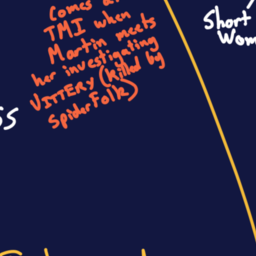 Comes
TMI when
Martin meets
her investigating
VITTERY (killed by
SpiderFolk)
Short
Wom